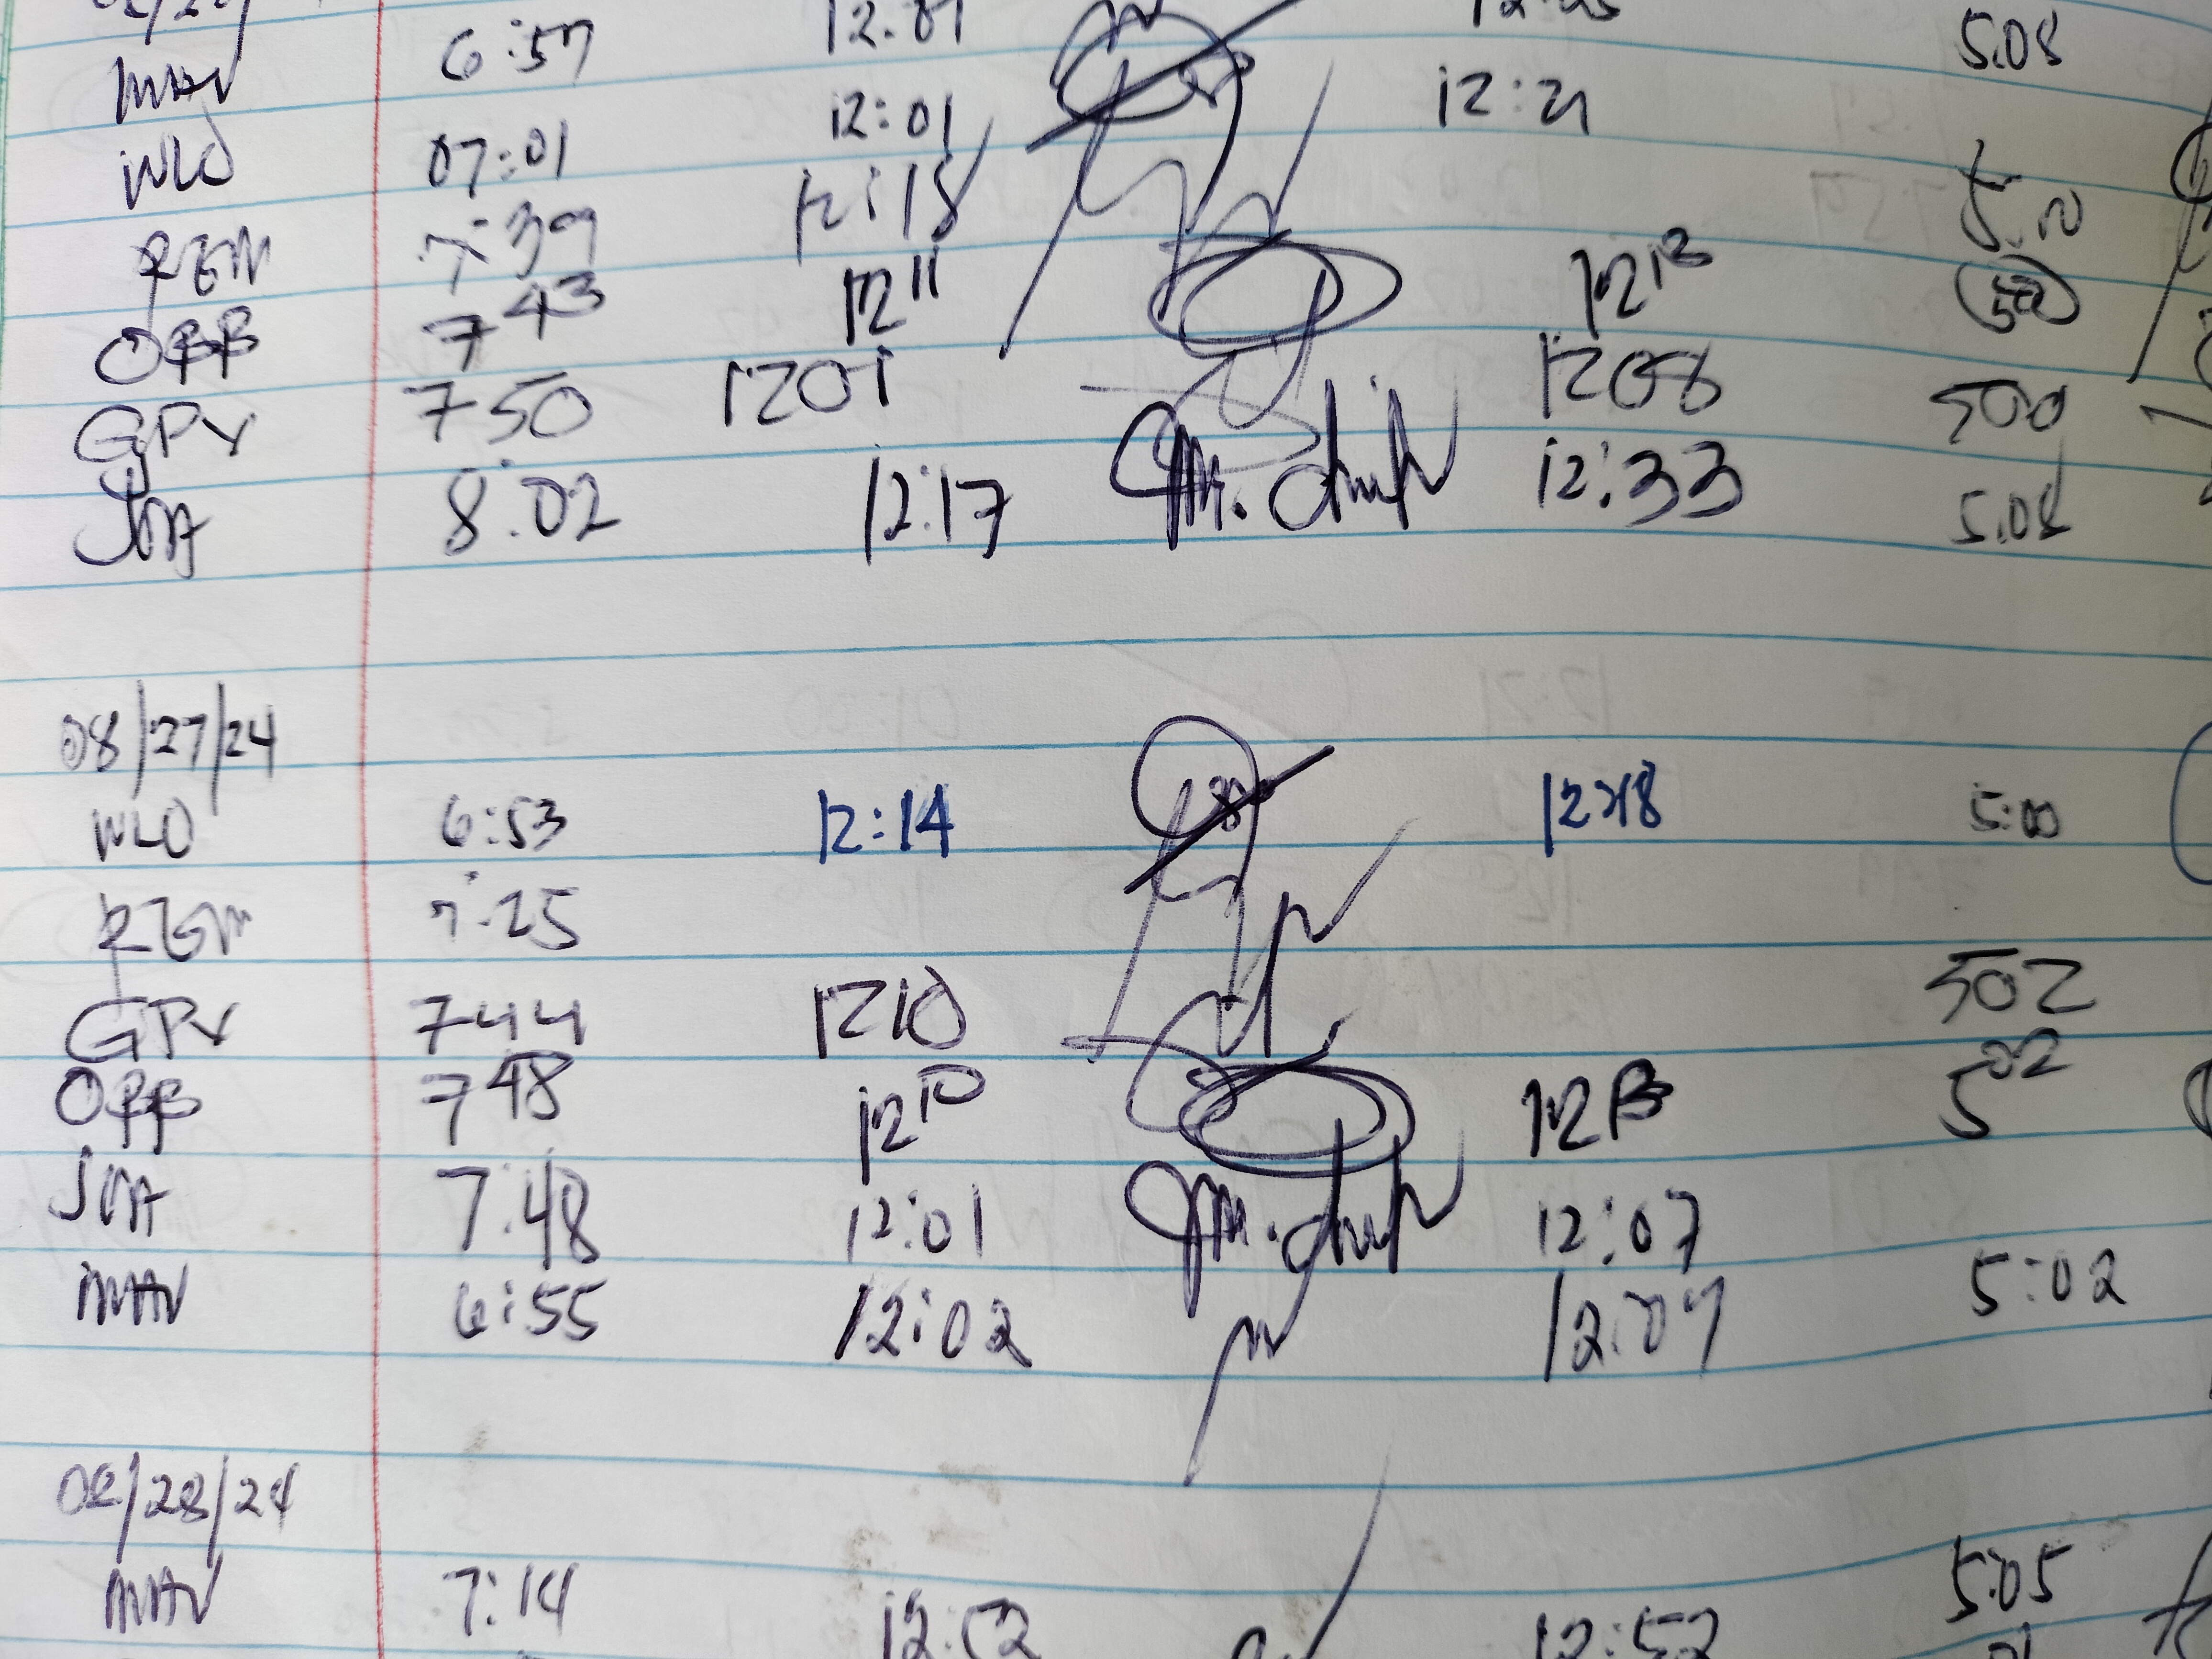 MAV 6:57 12:01 5.08
WLO 07:01 12:01 12:21
REM 7:39 12:18 5.10
OBB 7 43 12 11 12 13 502
GPV 750 1201 1208 500
JMA 8:02 12:17 12:33 5.08
08/27/24
WLO 6:53 12:14 12:18 5:00
REM 7:25
GPV 744 1210 502
OBB 7 48 12 10 12 13 5 02
JMA 7:48 12:01 12:07
MAV 6:55 12:02 12:07 5:02
08/28/24
MAV 7:14 12:52 5:05